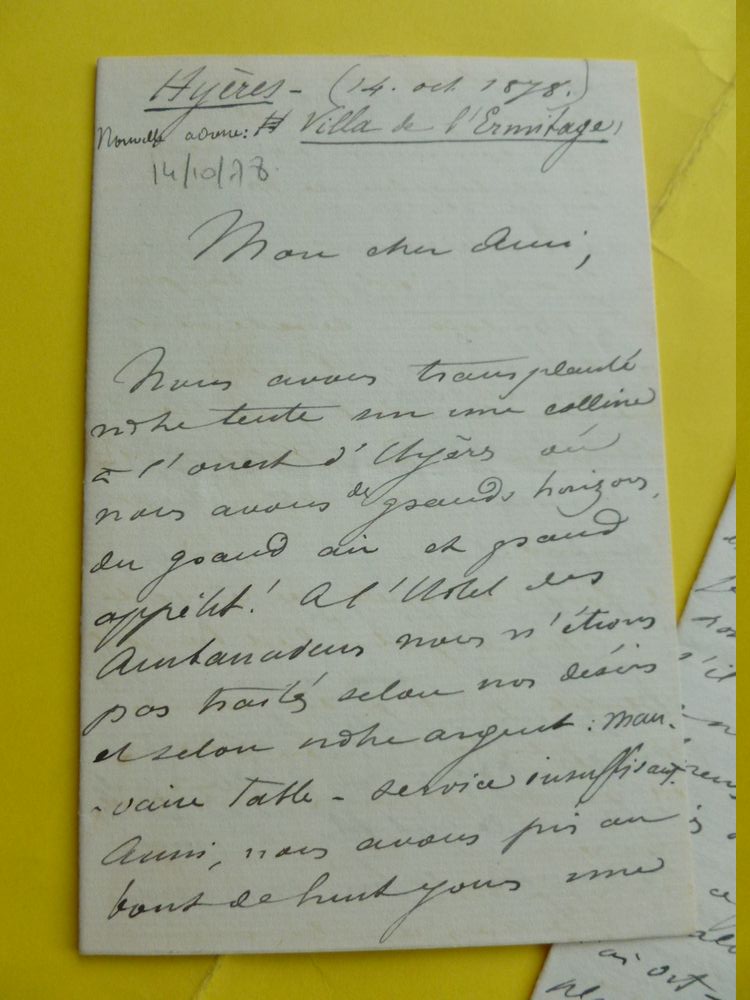 Hyères - (14. oct 1878.)
Nouvelle adresse: Villa de l'Ermitage,
14/10/78
Mon cher Ami,
Nous avons transplanté
notre tente sur une colline
à l'ouest d'Hyères où
nous avons de grands horizons,
du grand air et grand
appétit! A l'Hotel des
Ambassadeurs nous n'étions
pas traités selon nos désirs
et selon notre argent: mau-
-vaise Table - service insuffisant.
Aussi, nous avons pris au
bout de huit jours une